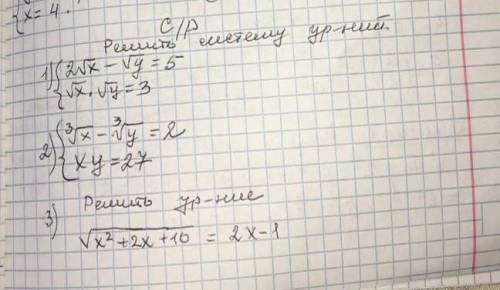 {x = 4.
С/р
Решить систему ур-ний.
1) {2√x − √y = 5
{√x · √y = 3
2) {∛x − ∛y = 2
{xy = 27
3) Решить ур-ние
√x²+2x+10 = 2x−1